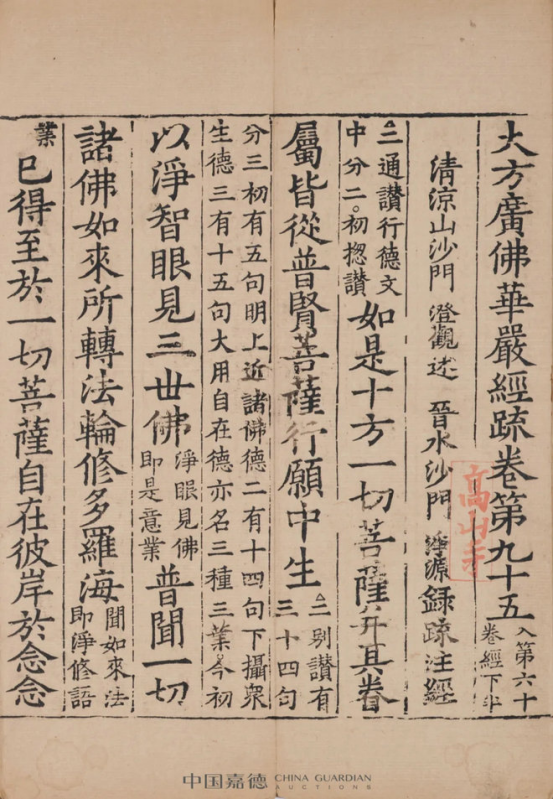 大方廣佛華嚴經疏卷第九十五 入第六十卷經下半
清涼山沙門 澄觀述 晉水沙門 淨源録疏注經
三通讚行德文中分二。初揔讚如是十方一切菩薩并其眷
屬皆從普賢菩薩行願中生三別讚有三十四句
分三初有五句明上近諸佛德二有十四句下攝衆
生德三有十五句大用自在德亦名三種三業今初
以淨智眼見三世佛淨眼見佛即是意業普聞一切
諸佛如來所轉法輪修多羅海聞如來法即淨修語
業已得至於一切菩薩自在彼岸於念念
高山寺
中国嘉德 CHINA GUARDIAN
AUCTIONS